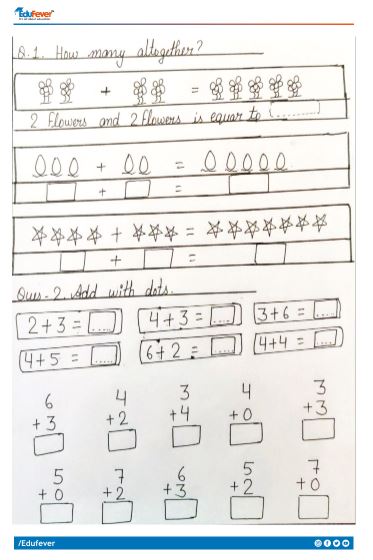 EduFever
Q.1. How many altogether?
+ =
2 Flowers and 2 Flowers is equar to (..........)
+ =
+ =
+ =
+ =
Ques-2. Add with dots.
2+3 = ..... 4+3 = ..... 3+6 = .....
4+5 = ..... 6+2 = ..... 4+4 = .....
6 4 3 4 3
+3 +2 +4 +0 +3
5 7 6 5 7
+0 +2 +3 +2 +0
/Edufever